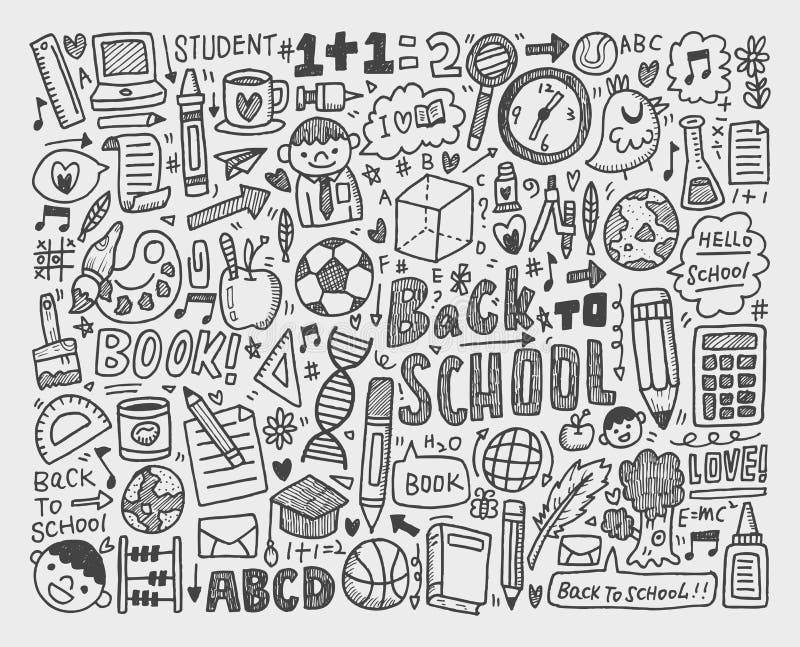 STUDENT
#1+1=2
ABC
A
I ♡
12
3
6
9
A
B
C
D
E
F
#
#
?
1+1
HELLO
SCHOOL
#
BACK TO
SCHOOL
BOOK!
#
H2O
BOOK
LOVE!
BACK
TO
SCHOOL
E=MC²
1+1=2
ABCD
BACK TO SCHOOL!!